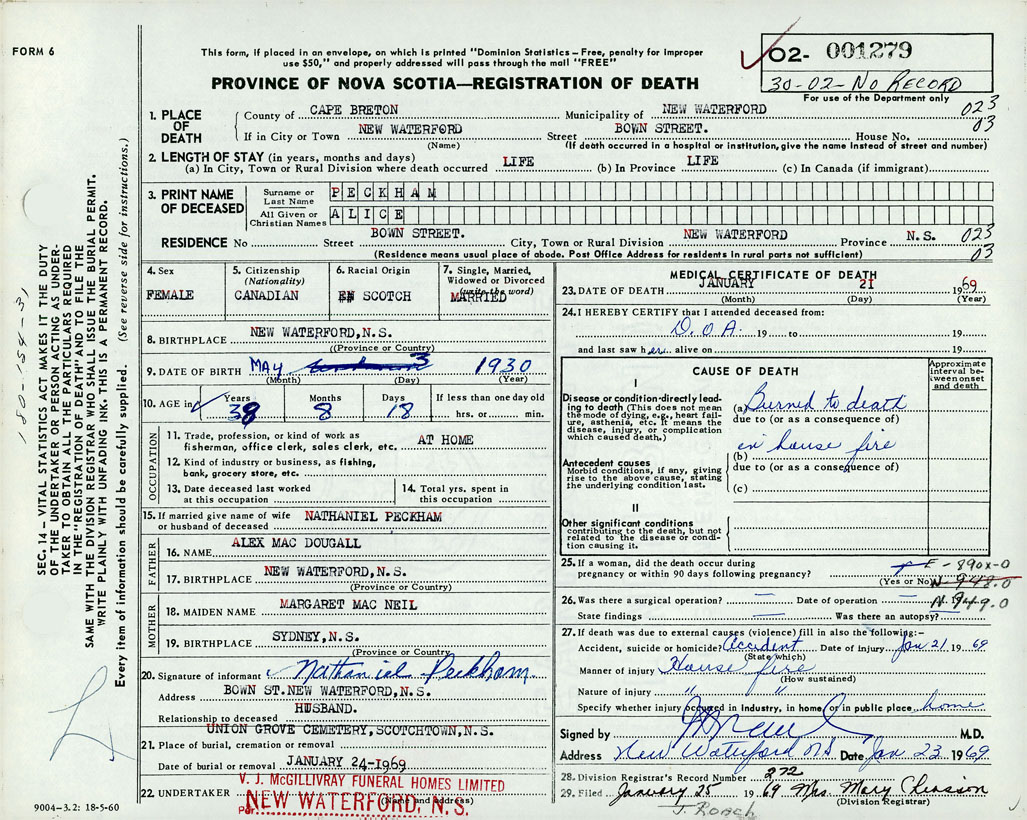 FORM 6
This form, if placed in an envelope, on which is printed "Dominion Statistics – Free, penalty for improper
use $50," and properly addressed will pass through the mail "FREE"
PROVINCE OF NOVA SCOTIA—REGISTRATION OF DEATH
O2- 001279
30-02-No RECORD
For use of the Department only
1. PLACE OF DEATH
County of CAPE BRETON Municipality of NEW WATERFORD 023
If in City or Town NEW WATERFORD Street BOWN STREET. House No. 03
(Name) (If death occurred in a hospital or institution, give the name instead of street and number)
2. LENGTH OF STAY (in years, months and days)
(a) In City, Town or Rural Division where death occurred LIFE (b) In Province LIFE (c) In Canada (if immigrant)
3. PRINT NAME OF DECEASED
Surname or Last Name PECKHAM
All Given or Christian Names ALICE
RESIDENCE No Street BOWN STREET. City, Town or Rural Division NEW WATERFORD Province N.S. 023
(Residence means usual place of abode. Post Office Address for residents in rural parts not sufficient) 03
4. Sex
FEMALE
5. Citizenship
(Nationality)
CANADIAN
6. Racial Origin
SCOTCH
7. Single, Married,
Widowed or Divorced
(write the word)
MARRIED
8. BIRTHPLACE NEW WATERFORD,N.S.
(Province or Country)
9. DATE OF BIRTH MAY 3 1930
(Month) (Day) (Year)
10. AGE in
Years Months Days If less than one day old
38 8 18 hrs. or min.
OCCUPATION
11. Trade, profession, or kind of work as
fisherman, office clerk, sales clerk, etc. AT HOME
12. Kind of industry or business, as fishing,
bank, grocery store, etc.
13. Date deceased last worked
at this occupation
14. Total yrs. spent in
this occupation
15. If married give name of wife
or husband of deceased NATHANIEL PECKHAM
FATHER
16. NAME ALEX MAC DOUGALL
17. BIRTHPLACE NEW WATERFORD,N.S.
(Province or Country)
MOTHER
18. MAIDEN NAME MARGARET MAC NEIL
19. BIRTHPLACE SYDNEY,N.S.
(Province or Country)
20. Signature of informant Nathanial Peckham
Address BOWN ST.NEW WATERFORD,N.S.
Relationship to deceased HUSBAND.
21. Place of burial, cremation or removal UNION GROVE CEMETERY,SCOTCHTOWN,N.S.
Date of burial or removal JANUARY 24-1969
22. UNDERTAKER V. J. McGILLIVRAY FUNERAL HOMES LIMITED
Per NEW WATERFORD, N. S.
(Name and address)
MEDICAL CERTIFICATE OF DEATH
23. DATE OF DEATH JANUARY 21 1969
(Month) (Day) (Year)
24. I HEREBY CERTIFY that I attended deceased from:
D.O.A. 19 to 19
and last saw her alive on 19
CAUSE OF DEATH
Approximate
interval be-
tween onset
and death
I
Disease or condition directly lead-
ing to death (This does not mean
the mode of dying, e.g., heart fail-
ure, asthenia, etc. It means the
disease, injury, or complication
which caused death.)
(a) Burned to death
due to (or as a consequence of)
in house fire
Antecedent causes
Morbid conditions, if any, giving
rise to the above cause, stating
the underlying condition last.
(b)
due to (or as a consequence of)
(c)
II
Other significant conditions
contributing to the death, but not
related to the disease or condi-
tion causing it.
25. If a woman, did the death occur during
pregnancy or within 90 days following pregnancy? (Yes or No)
E-890X-0
N-949.0
26. Was there a surgical operation? Date of operation 19 N-949.0
State findings Was there an autopsy?
27. If death was due to external causes (violence) fill in also the following:–
Accident, suicide or homicide? Accident Date of injury Jan 21 1969
(State which)
Manner of injury House fire
(How sustained)
Nature of injury " "
Specify whether injury occurred in industry, in home, or in public place home
Signed by M.D.
Address New Waterford NS Date Jan 23 1969
28. Division Registrar's Record Number 272
29. Filed January 25 1969 Mrs. Mary Chiasson
(Division Registrar)
J. Roach
9004-3.2: 18-5-60
SEC. 14 – VITAL STATISTICS ACT MAKES IT THE DUTY
OF THE UNDERTAKER OR PERSON ACTING AS UNDER-
TAKER TO OBTAIN ALL THE PARTICULARS REQUIRED
IN THE "REGISTRATION OF DEATH" AND TO FILE THE
SAME WITH THE DIVISION REGISTRAR WHO SHALL ISSUE THE BURIAL PERMIT.
WRITE PLAINLY WITH UNFADING INK. THIS IS A PERMANENT RECORD.
Every item of information should be carefully supplied. (See reverse side for instructions.)